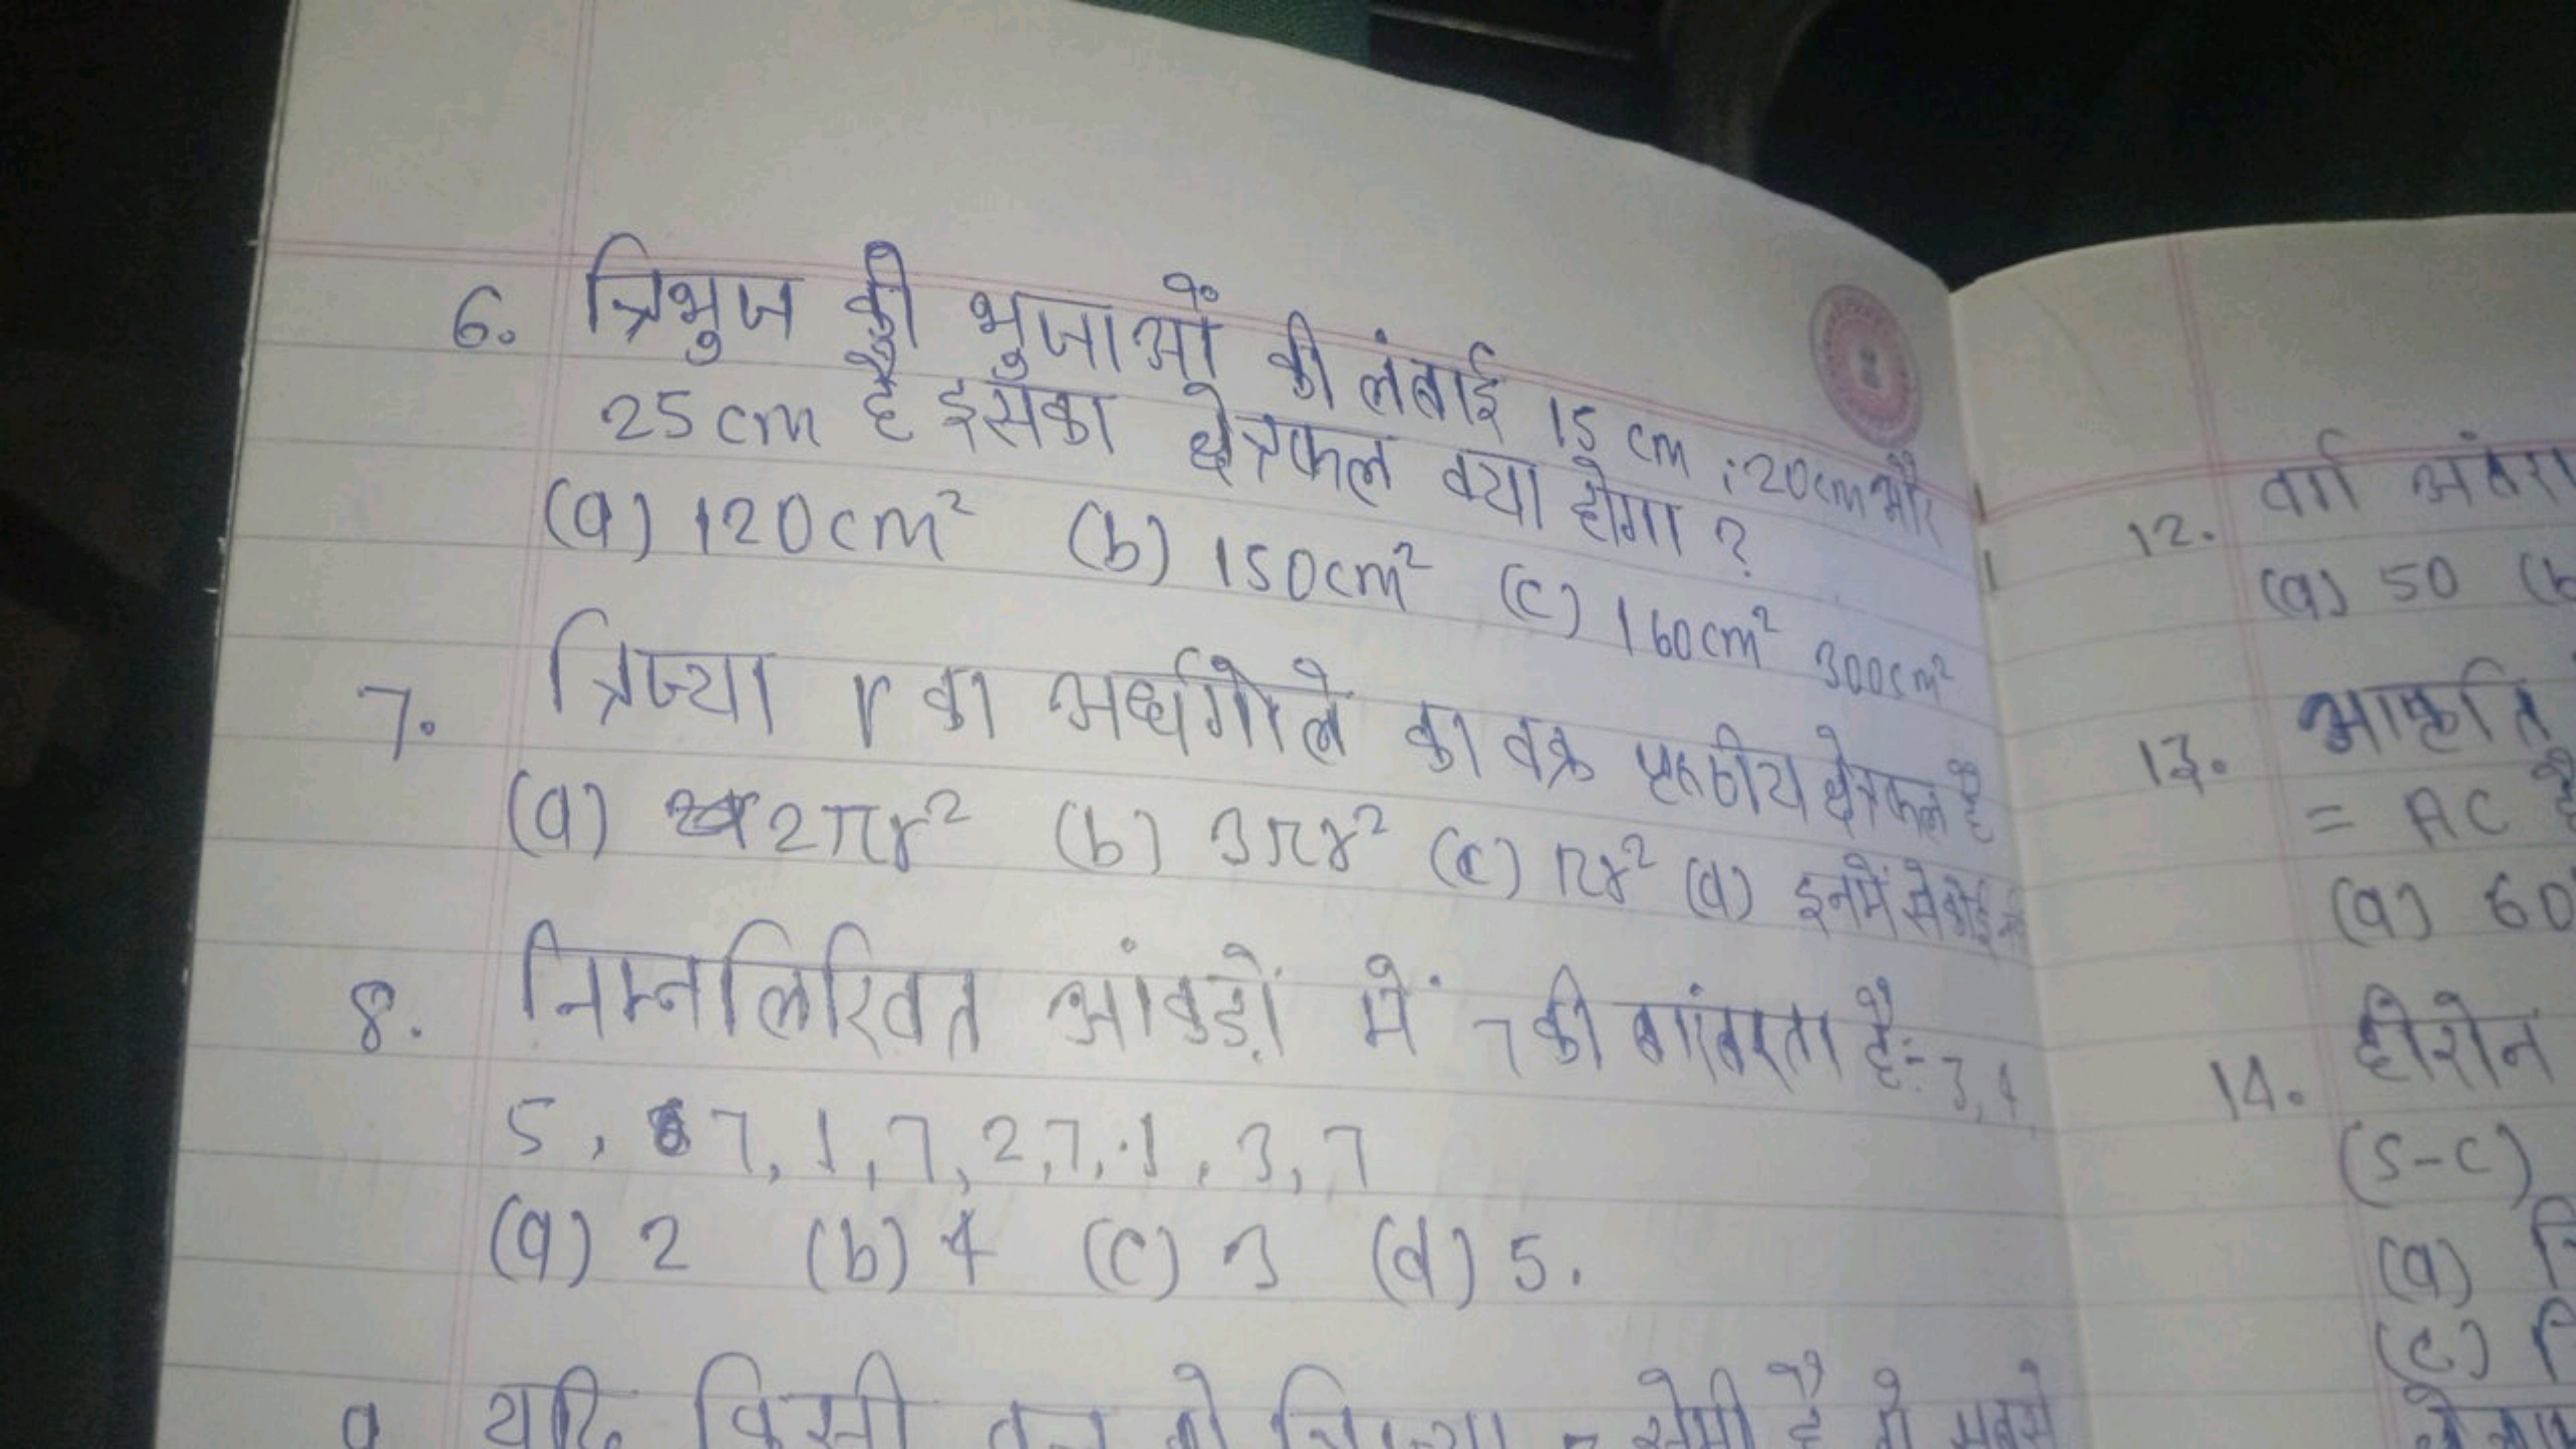 6. त्रिभुज की भुजाओं की लंबाई 15 cm ; 20cm और
25 cm है इसका क्षेत्रफल क्या होगा ?
(a) 120 cm² (b) 150 cm² (c) 160 cm² 300 cm²
7. त्रिज्या r का अर्धगोले का वक्र पृष्ठीय क्षेत्रफल है
(a) 2πr² (b) 3πr² (c) πr² (d) इनमें से कोई
8. निम्नलिखित आंकड़ों में 7 की बारंबारता है:- 3, 4,
5, 7, 1, 7, 2, 7, 1, 3, 7
(a) 2 (b) 4 (c) 3 (d) 5.
9 यदि किसी
12. वर्ग अंतरा
(a) 50 (b
13. आकृति
= AC
(a) 60
14. हीरोन
(s-c)
(a)
(c)